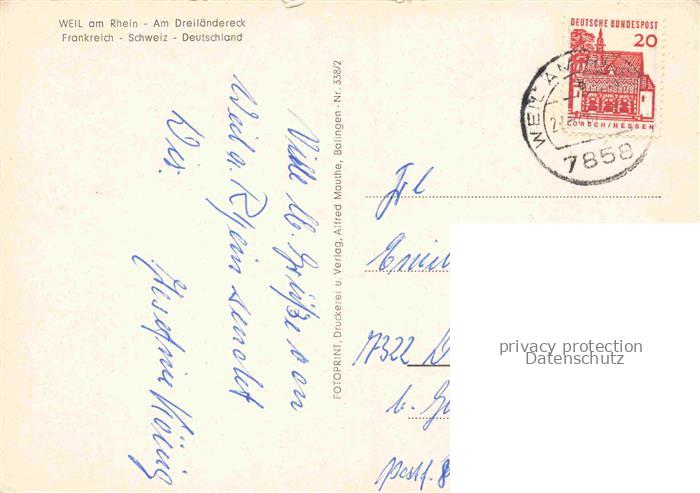 WEIL am Rhein - Am Dreiländereck
Frankreich - Schweiz - Deutschland
Viele lb. Grüße von
Weil a. Rhein sendet
Dir
König
FOTOPRINT, Druckerei u. Verlag, Alfred Mauthe, Balingen - Nr. 338/2
DEUTSCHE BUNDESPOST
20
LORSCH/HESSEN
WEIL AM
7858
Frl
7322 D
b. Gö
Postf. 8
privacy protection
Datenschutz